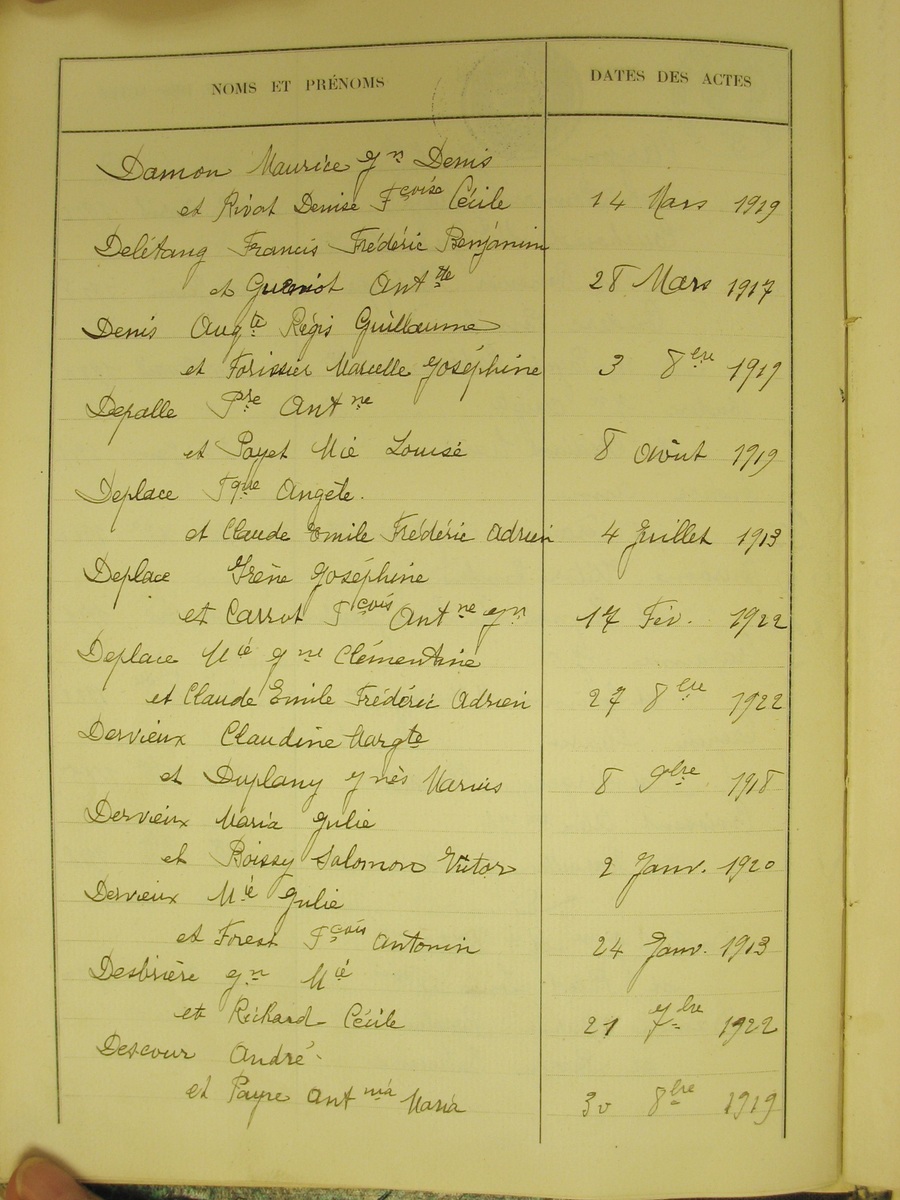 NOMS ET PRÉNOMS DATES DES ACTES
Damon Maurice Jn Denis
et Rivat Denise Fçoise Cécile 14 Mars 1919
Delétang Francis Frédéric Benjamin
et Gueniot Anttte 28 Mars 1917
Denis Augte Régis Guillaume
et Forissier Marcelle Joséphine 3 8bre 1919
Depalle Pre Antne
et Payet Mie Louise 8 Août 1919
Deplace Fque Angèle.
et Claude Emile Frédéric Adrien 4 Juillet 1913
Deplace Irène Joséphine
et Carrot Fçois Antne Jn 17 Fév. 1922
Deplace Mie Jne Clémentine
et Claude Emile Frédéric Adrien 27 8bre 1922
Dervieux Claudine Margte
et Duplany Jnès Marius 8 9bre 1918
Dervieux Maria Julie
et Boissy Salomon Victor 2 Janv. 1920
Dervieux Mie Julie
et Forest Fçois Antonin 24 Janv. 1913
Desbrière Jn Mie
et Richard Cécile 21 7bre 1922
Descour André
et Payre Antnia Maria 30 8bre 1919